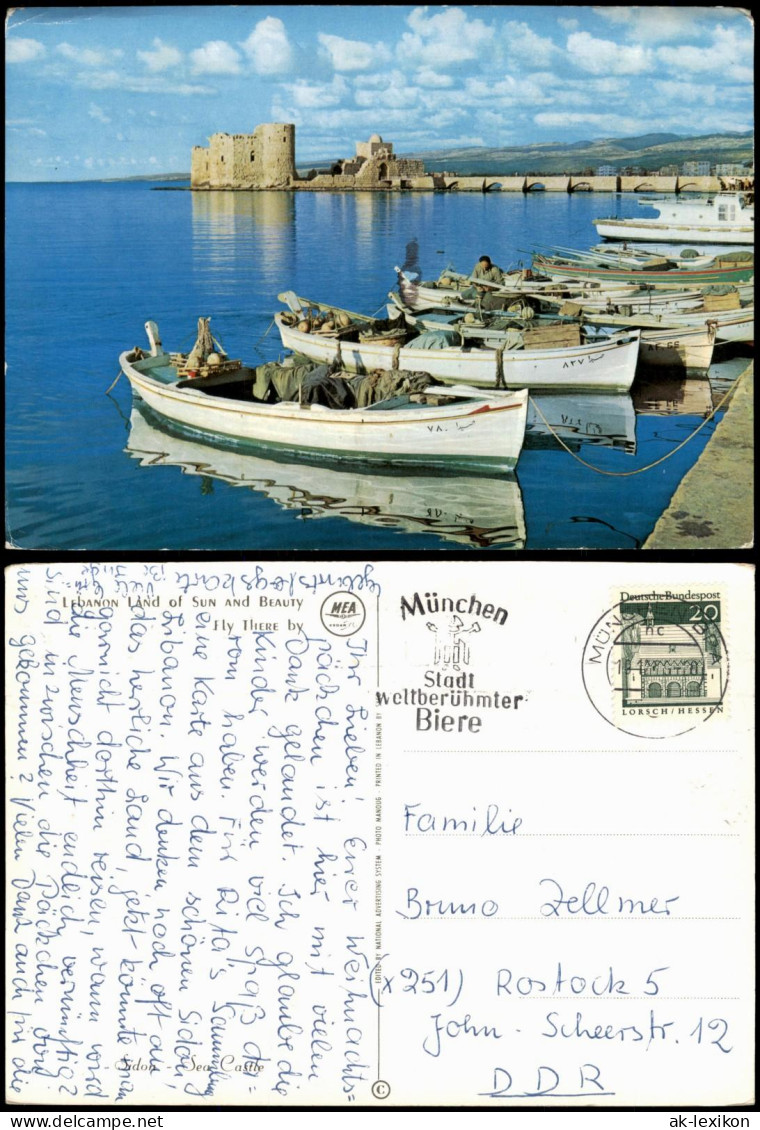 ٧٨٠ صيدا
٨٢٧
LEBANON LAND OF SUN AND BEAUTY
FLY THERE BY
MEA
Ihr Lieben! Euer Weihnachts=
päckchen ist hier mit vielen
Dank gelandet. Ich glaube die
Kinder werden viel Spaß dar=
von haben. Für Rita's Sammlung
eine Karte aus dem schönen Sidon,
Libanon. Wir denken noch oft an
das herrliche Land, jetzt könnte man
garnicht dorthin reisen, wann wird
die Menschheit endlich vernünftig?
Sind inzwischen die Päckchen von
uns gekommen? Vielen Dank auch für die
geburtstagskarte
Sidon - Sea Castle
EDITED BY NATIONAL ADVERTISING SYSTEM - PHOTO MANOUG - PRINTED IN LEBANON BY
©
München
Stadt
weltberühmter
Biere
MÜNCHEN
Deutsche Bundespost
20
LORSCH/HESSEN
Familie
Bruno Zellmer
(x251) Rostock 5
John-Scheerstr. 12
DDR
ak-lexikon